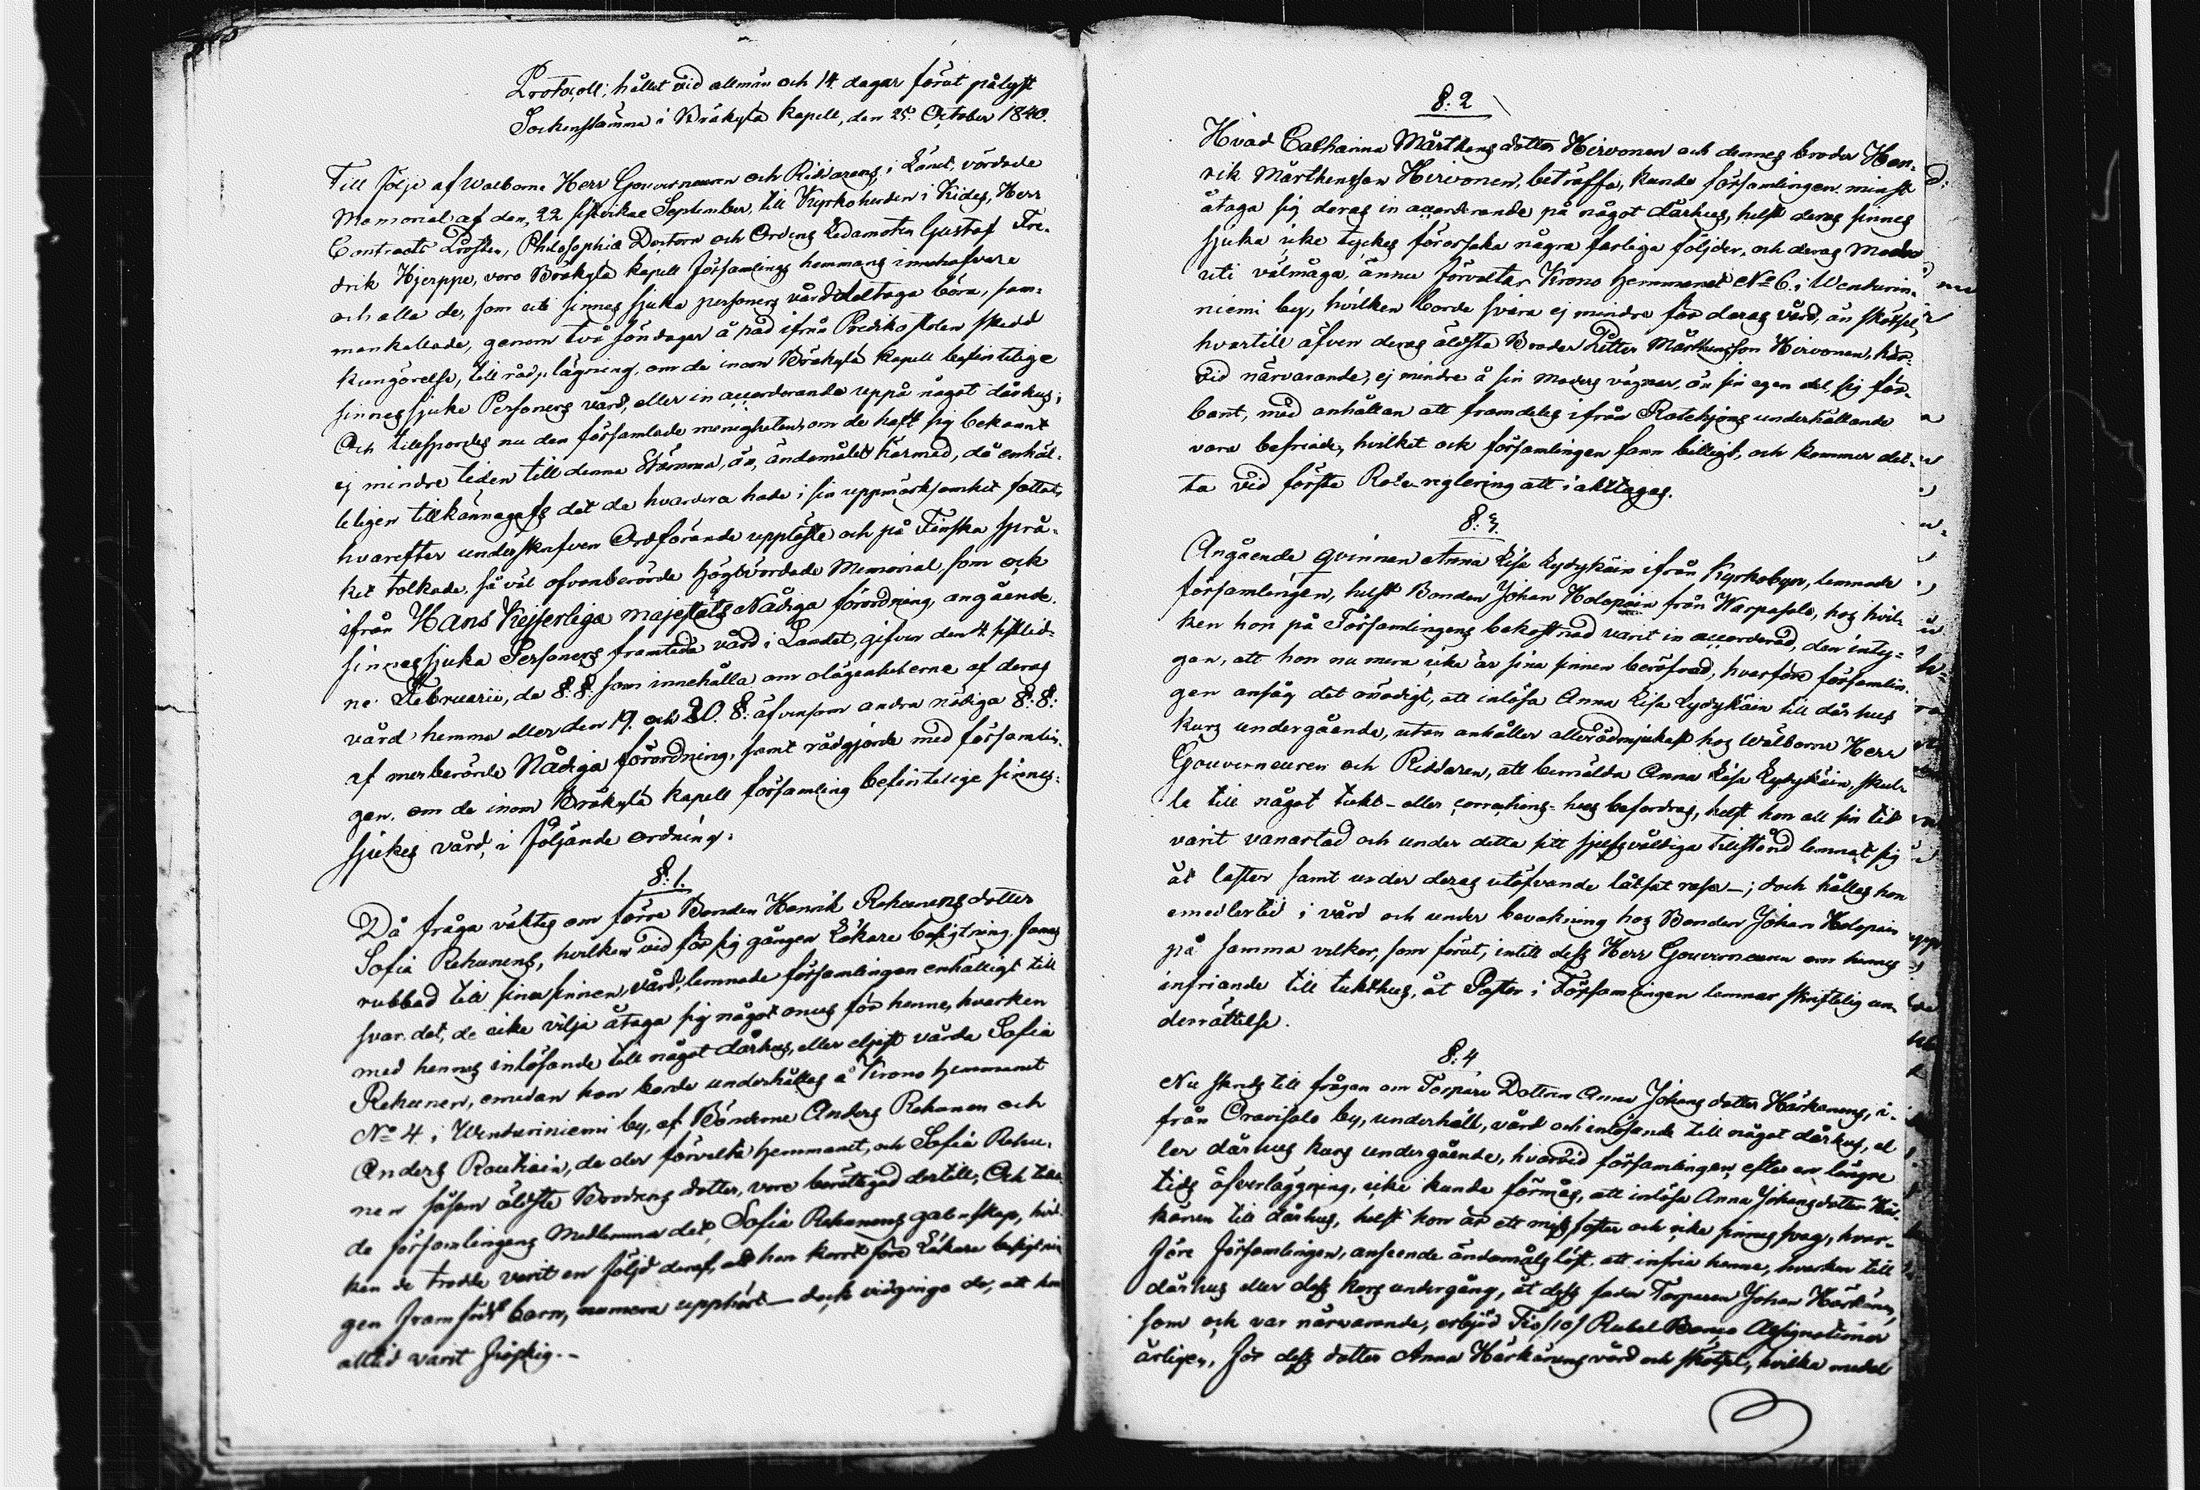 Protocoll, hållet vid allmän och 14 dagar förut pålyst
Sockenstämma i Bräkylä Kapell, den 25. October 1840.
Till följe af Wälborne Herr Gouverneuren och Riddarens i Länet, vördade
Memorial af den 22 sistvikne September, till Kyrkoherden i Kides, Herr
Contracts Prosten, Philosophiæ Doctorn och Ordens Ledamoten Gustaf Fre-
drik Hjerppe, voro Bräkylä kapell församlings hemmans innehafvare
och alla de, som uti sinnes sjuka personers vård deltaga böra, sam-
mankallade, genom två söndagar å rad ifrån Predikostolen skedd
kungörelse, till rådplägning, om de inom Bräkylä kapell befintelige
sinnessjuke Personers vård, eller in accorderande uppå något dårhus;
Och tillspordes nu den församlade menigheten, om de haft sig bekannt
ej mindre tiden till denna Stämma, än, ändamålet härmed, då enhäl-
leligen tillkännagafs det de hvardera hade i sin uppmärksamhet fattat,
hvarefter underskrefven Ordförande uppläste och på Finska språ-
ket tolkade, så väl ofvanberörde högtvördade Memorial, som ock
ifrån Hans Kejserliga Majestäts Nådiga förordning, angående
sinnessjuka Personers framtida vård i Landet, gifven den 4 sistlid-
ne Februarii, de §:§: som innehålla om olägenheterne af deras
vård hemma eller den 19. och 20. §: äfvensom andra nödiga §:§:
af merberörde Nådiga förordning, samt rådgjorde med församlin-
gen, om de inom Bräkylä kapell församling befintelige sinnes-
sjukes vård, i följande ordning:
§:1.
Då fråga väktes om förre Bonden Henrik Rehunens dotter
Sofia Rehunens, hvilken vid för sig gången Läkare besigtning fanns
rubbad till sina sinnen, vård, lemnade församlingen enhälligt till
svar det, de icke vilja åtaga sig något onus för henne, hvarken
med hennes inlösande till något dårhus, eller eljest vårda Sofia
Rehunen, emedan hon borde underhållas å Krono hemmanet
No 4 i Wenturiniemi by, af Bönderne Anders Rehunen och
Anders Rautiain, de der förvalta hemmanet, och Sofia Rehu-
nen såsom äldste Brodrens dotter, vore berättigad dertill; Och trod-
de församlingens Medlemmar det, Sofia Rehunens galenskap, hvil-
ken de trodde varit en följd deraf, att hon kort före Läkare besigtnin-
gen framfödt barn, numera upphört – dock vidgingo de, att hon
alltid varit fjäskig. –
§:2
Hvad Catharina Mårthens dotter Hirvonen och dennes broder Hen-
rik Mårthensson Hirvonen, beträffa, kunde församlingen minst
åtaga sig deras in accorderande på något dårhus, helst deras sinnes
sjuka icke tyckes förorsaka några farliga följder, och deras Moder
uti välmåga ännu förvaltar Krono hemmanet No 6 i Wenturin-
niemi by, hvilken borde svara ej mindre för deras vård, än skötsel,
hvartill äfven deras äldsta Broder Petter Mårthensson Hirvonen, här-
vid närvarande, ej mindre å sin moders vägnar, än sin egen del, sig för-
band, med anhållan att framdeles ifrån Rotehjons underhållande
vara befriade, hvilket ock församlingen fann billigt, och kommer det-
ta vid förste Rote reglering att i akttagas.
§:3.
Angående qvinnan Anna Lisa Lydykäin ifrån Kyrkobyn, lemnade
församlingen, helst Bonden Johan Holopain från Warpasalo, hos hvil-
ken hon på Församlingens bekostnad varit in accorderad, den inty-
gan, att hon nu mera icke är sina sinnen beröfvad, hvarföre församlin-
gen ansåg det onödigt, att inlösa Anna Lisa Lydykäin till dårhus
kurs undergående, utan anhåller allerödmjukast hos Wälborne Herr
Gouverneuren och Riddaren, att bemälda Anna Lisa Lydykäin, skul-
le till något tukt- eller corrections-hus befordras, helst hon all sin tid
varit vanartad och under detta sitt sjelfsvåldiga tillstånd lemnat sig
åt laster samt under deras utöfvande låtsat rasa –; doch hålles hon
emedlertid i vård och under bevakning hos Bonden Johan Holopain
på samma vilkor, som förut, intill dess Herr Gouverneuren om hennes
infriande till tukthus, åt Pastor i Församlingen lemnar skriftelig un-
derrättelse.
§:4
Nu skreds till frågan om Torpare Dottren Anna Johans dotter Härkänens, i-
från Oravisalo by, underhåll, vård och inlösande till något dårhus, el-
ler dårhus kurs undergående, hvarvid församlingen efter en längre
tids öfverläggning, icke kunde förmås, att inlösa Anna Johansdotter Här-
känen till dårhus, helst hon är ett missfoster och icke sinnes svag, hvar-
före församlingen, ansende ändamåls löst, att infria henne, hvarken till
dårhus eller dess kurs undergång, åt dess fader Torparen Johan Härkänen,
som ock var närvarande, erbjöd Tio /10/ Rubel Banco Assignationer
årligen, för dess dotter Anna Härkänens vård och skötsel, hvilka medel